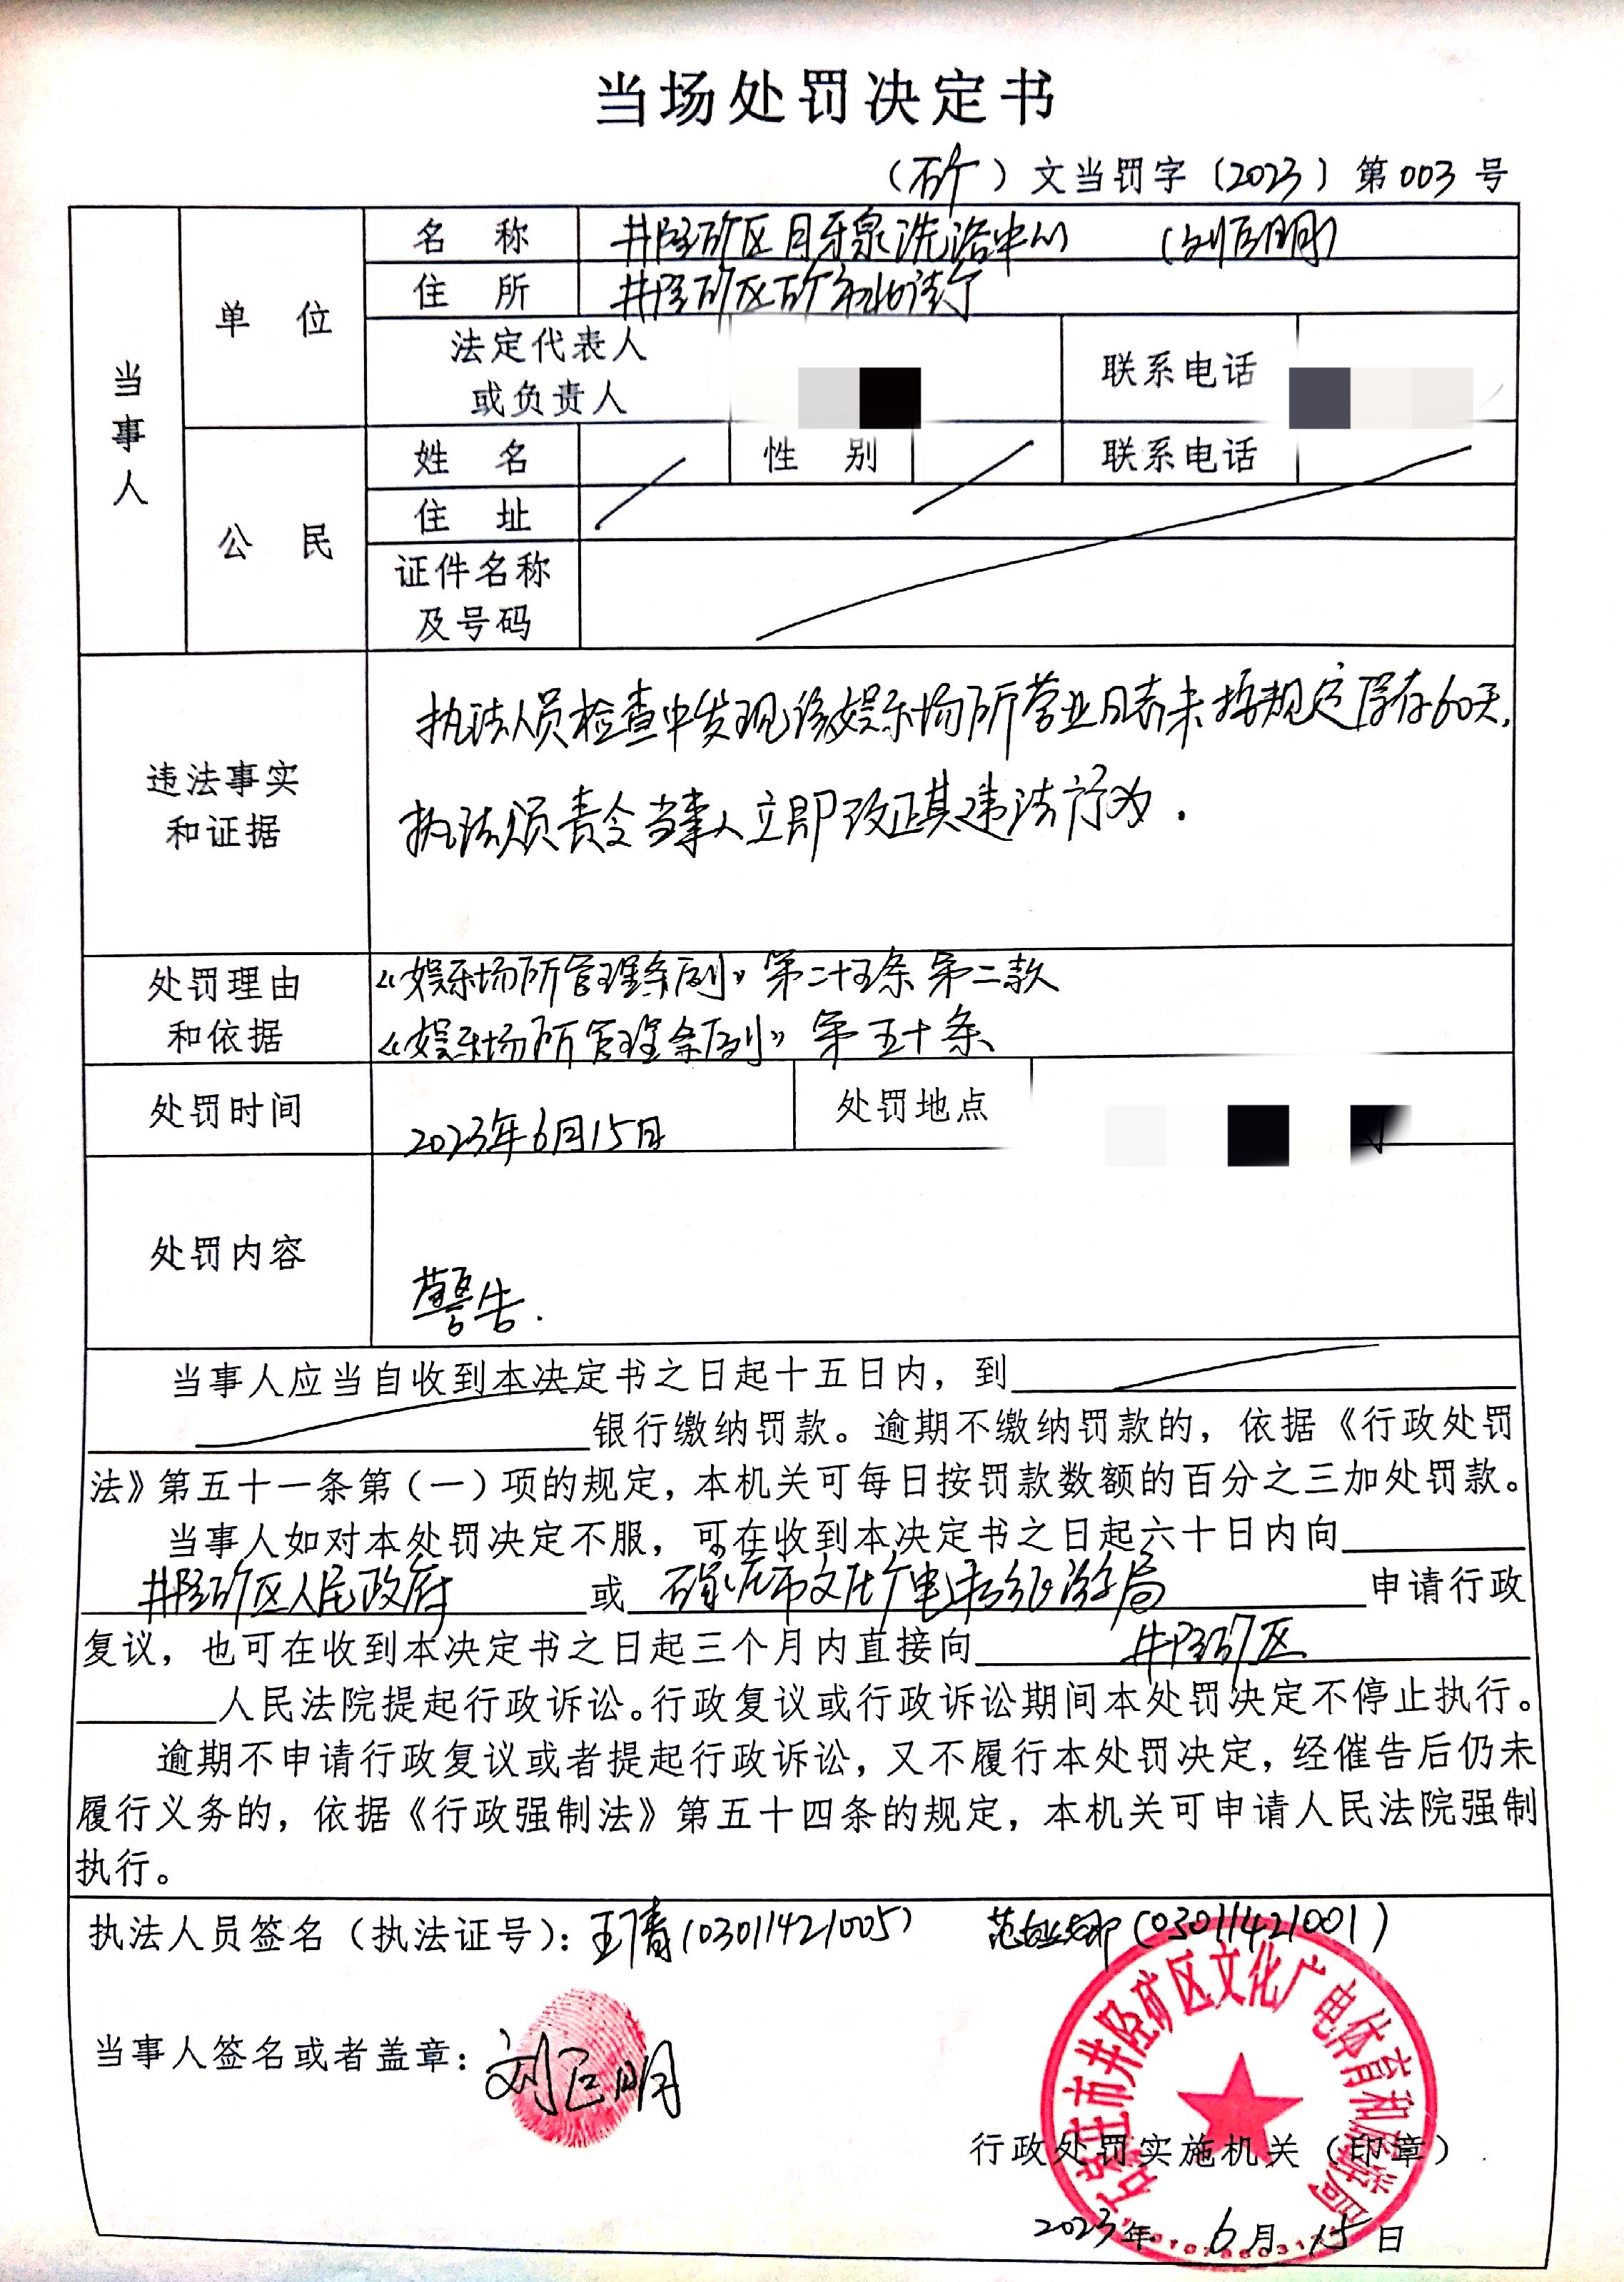 当场处罚决定书
（矿）文当罚字〔2023〕第003号
当事人
单位
名称 井陉矿区月牙泉洗浴中心 （刘巨明）
住所 井陉矿区矿市北街
法定代表人或负责人
联系电话
公民
姓名 性别 联系电话
住址
证件名称及号码
违法事实和证据
执法人员检查中发现该娱乐场所营业日志未按规定保存60天,
执法人员责令当事人立即改正其违法行为.
处罚理由和依据
《娱乐场所管理条例》第二十五条第二款
《娱乐场所管理条例》第五十条
处罚时间 2023年6月15日 处罚地点
处罚内容
警告.
当事人应当自收到本决定书之日起十五日内，到
银行缴纳罚款。逾期不缴纳罚款的，依据《行政处罚
法》第五十一条第（一）项的规定，本机关可每日按罚款数额的百分之三加处罚款。
当事人如对本处罚决定不服，可在收到本决定书之日起六十日内向
井陉矿区人民政府或石家庄市文化广电和旅游局申请行政
复议，也可在收到本决定书之日起三个月内直接向井陉矿区
人民法院提起行政诉讼。行政复议或行政诉讼期间本处罚决定不停止执行。
逾期不申请行政复议或者提起行政诉讼，又不履行本处罚决定，经催告后仍未
履行义务的，依据《行政强制法》第五十四条的规定，本机关可申请人民法院强制
执行。
执法人员签名（执法证号）：王倩（03011421005） （03011421001）
当事人签名或者盖章：刘巨明
石家庄市井陉矿区文化广电体育和旅游局
行政处罚实施机关（印章）
2023年6月15日